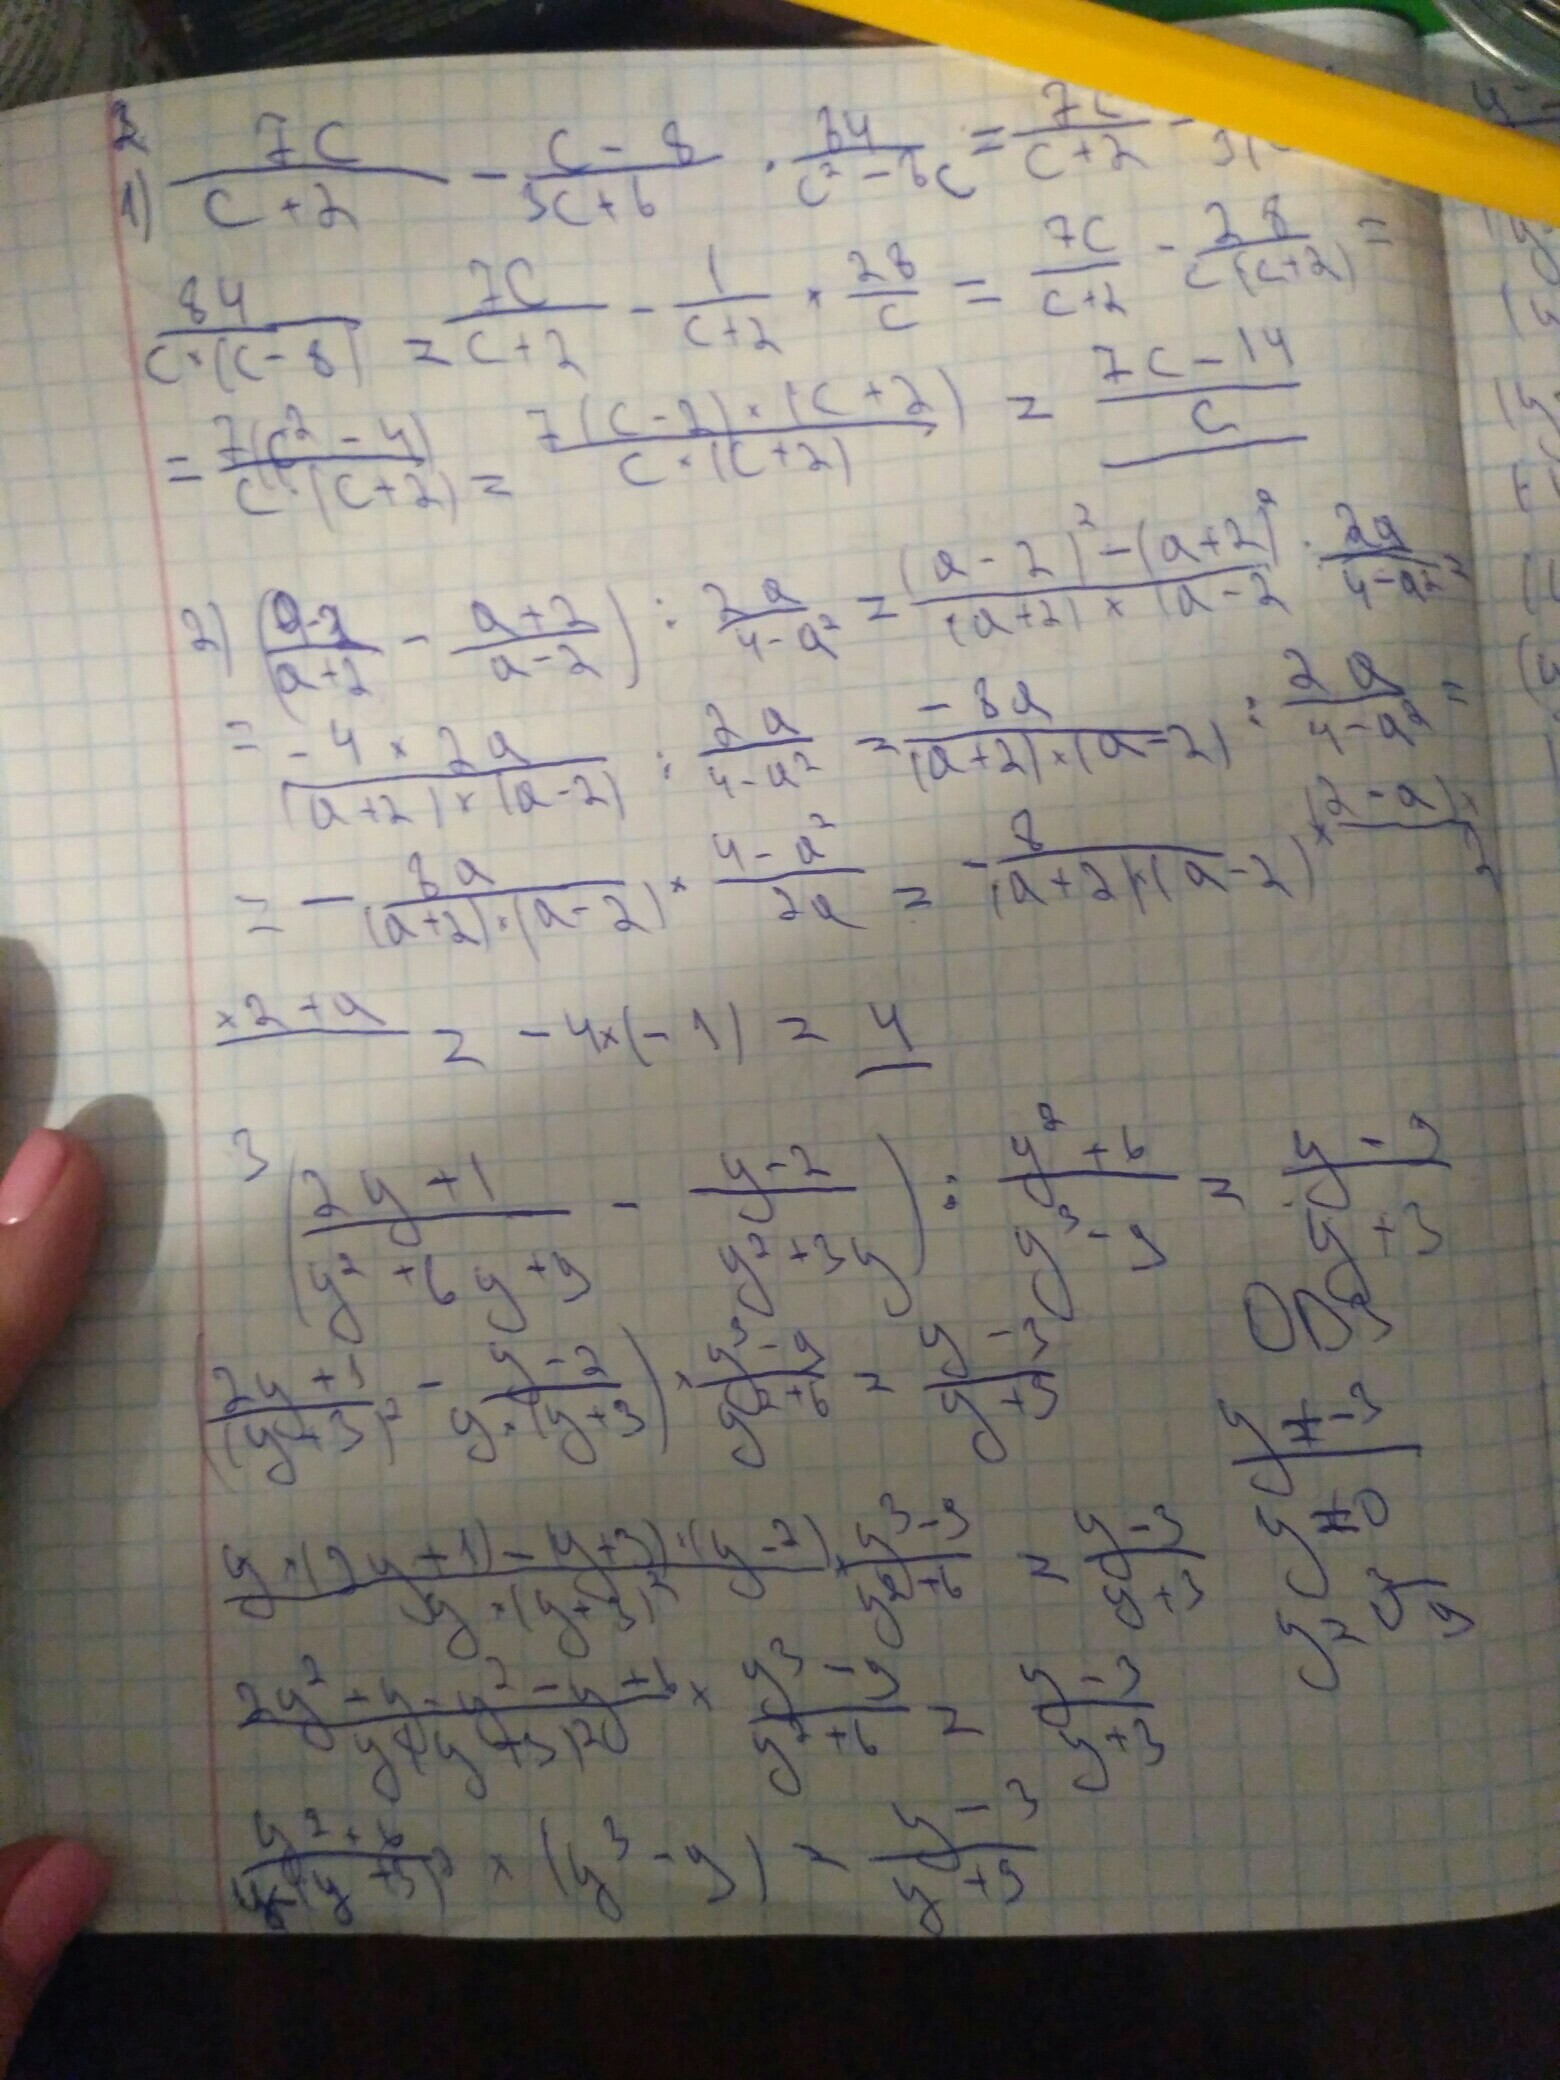 2
1) 7c/(c+2) - (c-8)/(3c+6) · 84/(c²-8c) = 7c/(c+2) - 3(
84/(c·(c-8)) = 7c/(c+2) - 1/(c+2) × 28/c = 7c/(c+2) - 28/(c(c+2)) =
= 7(c²-4)/(c·(c+2)) = 7(c-2)×(c+2)/(c·(c+2)) = (7c-14)/c
2) ((a-2)/(a+2) - (a+2)/(a-2)) : 2a/(4-a²) = ((a-2)²-(a+2)²)/((a+2)×(a-2) : 2a/(4-a²) =
= -4×2a/((a+2)×(a-2)) : 2a/(4-a²) = -8a/((a+2)×(a-2)) : 2a/(4-a²) =
= - 8a/((a+2)·(a-2)) × (4-a²)/2a = - 8/((a+2)×(a-2)) × (2-a)×/2
×2+a = -4×(-1) = 4
3 ((2y+1)/(y²+6y+9) - (y-2)/(y²+3y)) : (y²+6)/(y³-9) = (y-3)/(y+3)
ОДЗ
((2y+1)/(y+3)² - (y-2)/(y·(y+3))) × (y³-9)/(y²+6) = (y-3)/(y+3)
y≠-3
y≠0
(y×(2y+1)-(y+3)·(y-2))/(y×(y+3)²) × (y³-9)/(y²+6) = (y-3)/(y+3)
(2y²+y-y²-y+6)/(y×(y+3)²) × (y³-9)/(y²+6) = (y-3)/(y+3)
(y²+6)/(y×(y+3)²) × (y³-9) = (y-3)/(y+3)